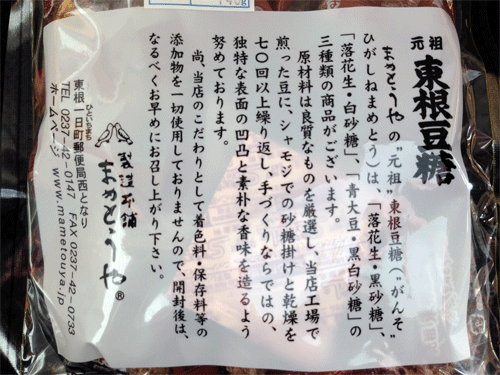 140g
元祖 東根豆糖
まめとうやの"元祖"東根豆糖("がんそ"
ひがしねまめとう)は、「落花生・黒砂糖」、
「落花生・白砂糖」、「青大豆・黒白砂糖」の
三種類の商品がございます。
原材料は良質なものを厳選し、当店工場で
煎った豆に、シャモジでの砂糖掛けと乾燥を
七〇回以上繰り返し、手づくりならではの、
独特な表面の凹凸と素朴な香味を造るよう
努めております。
尚、当店のこだわりとして着色料・保存料等の
添加物を一切使用しておりませんので、開封後は、
なるべくお早めにお召し上がり下さい。
製造本舗
まめとうや®
ひといちまち
東根一日町郵便局西となり
TEL 0237-42-0147 FAX 0237-42-0733
ホームページ www.mametouya.jp